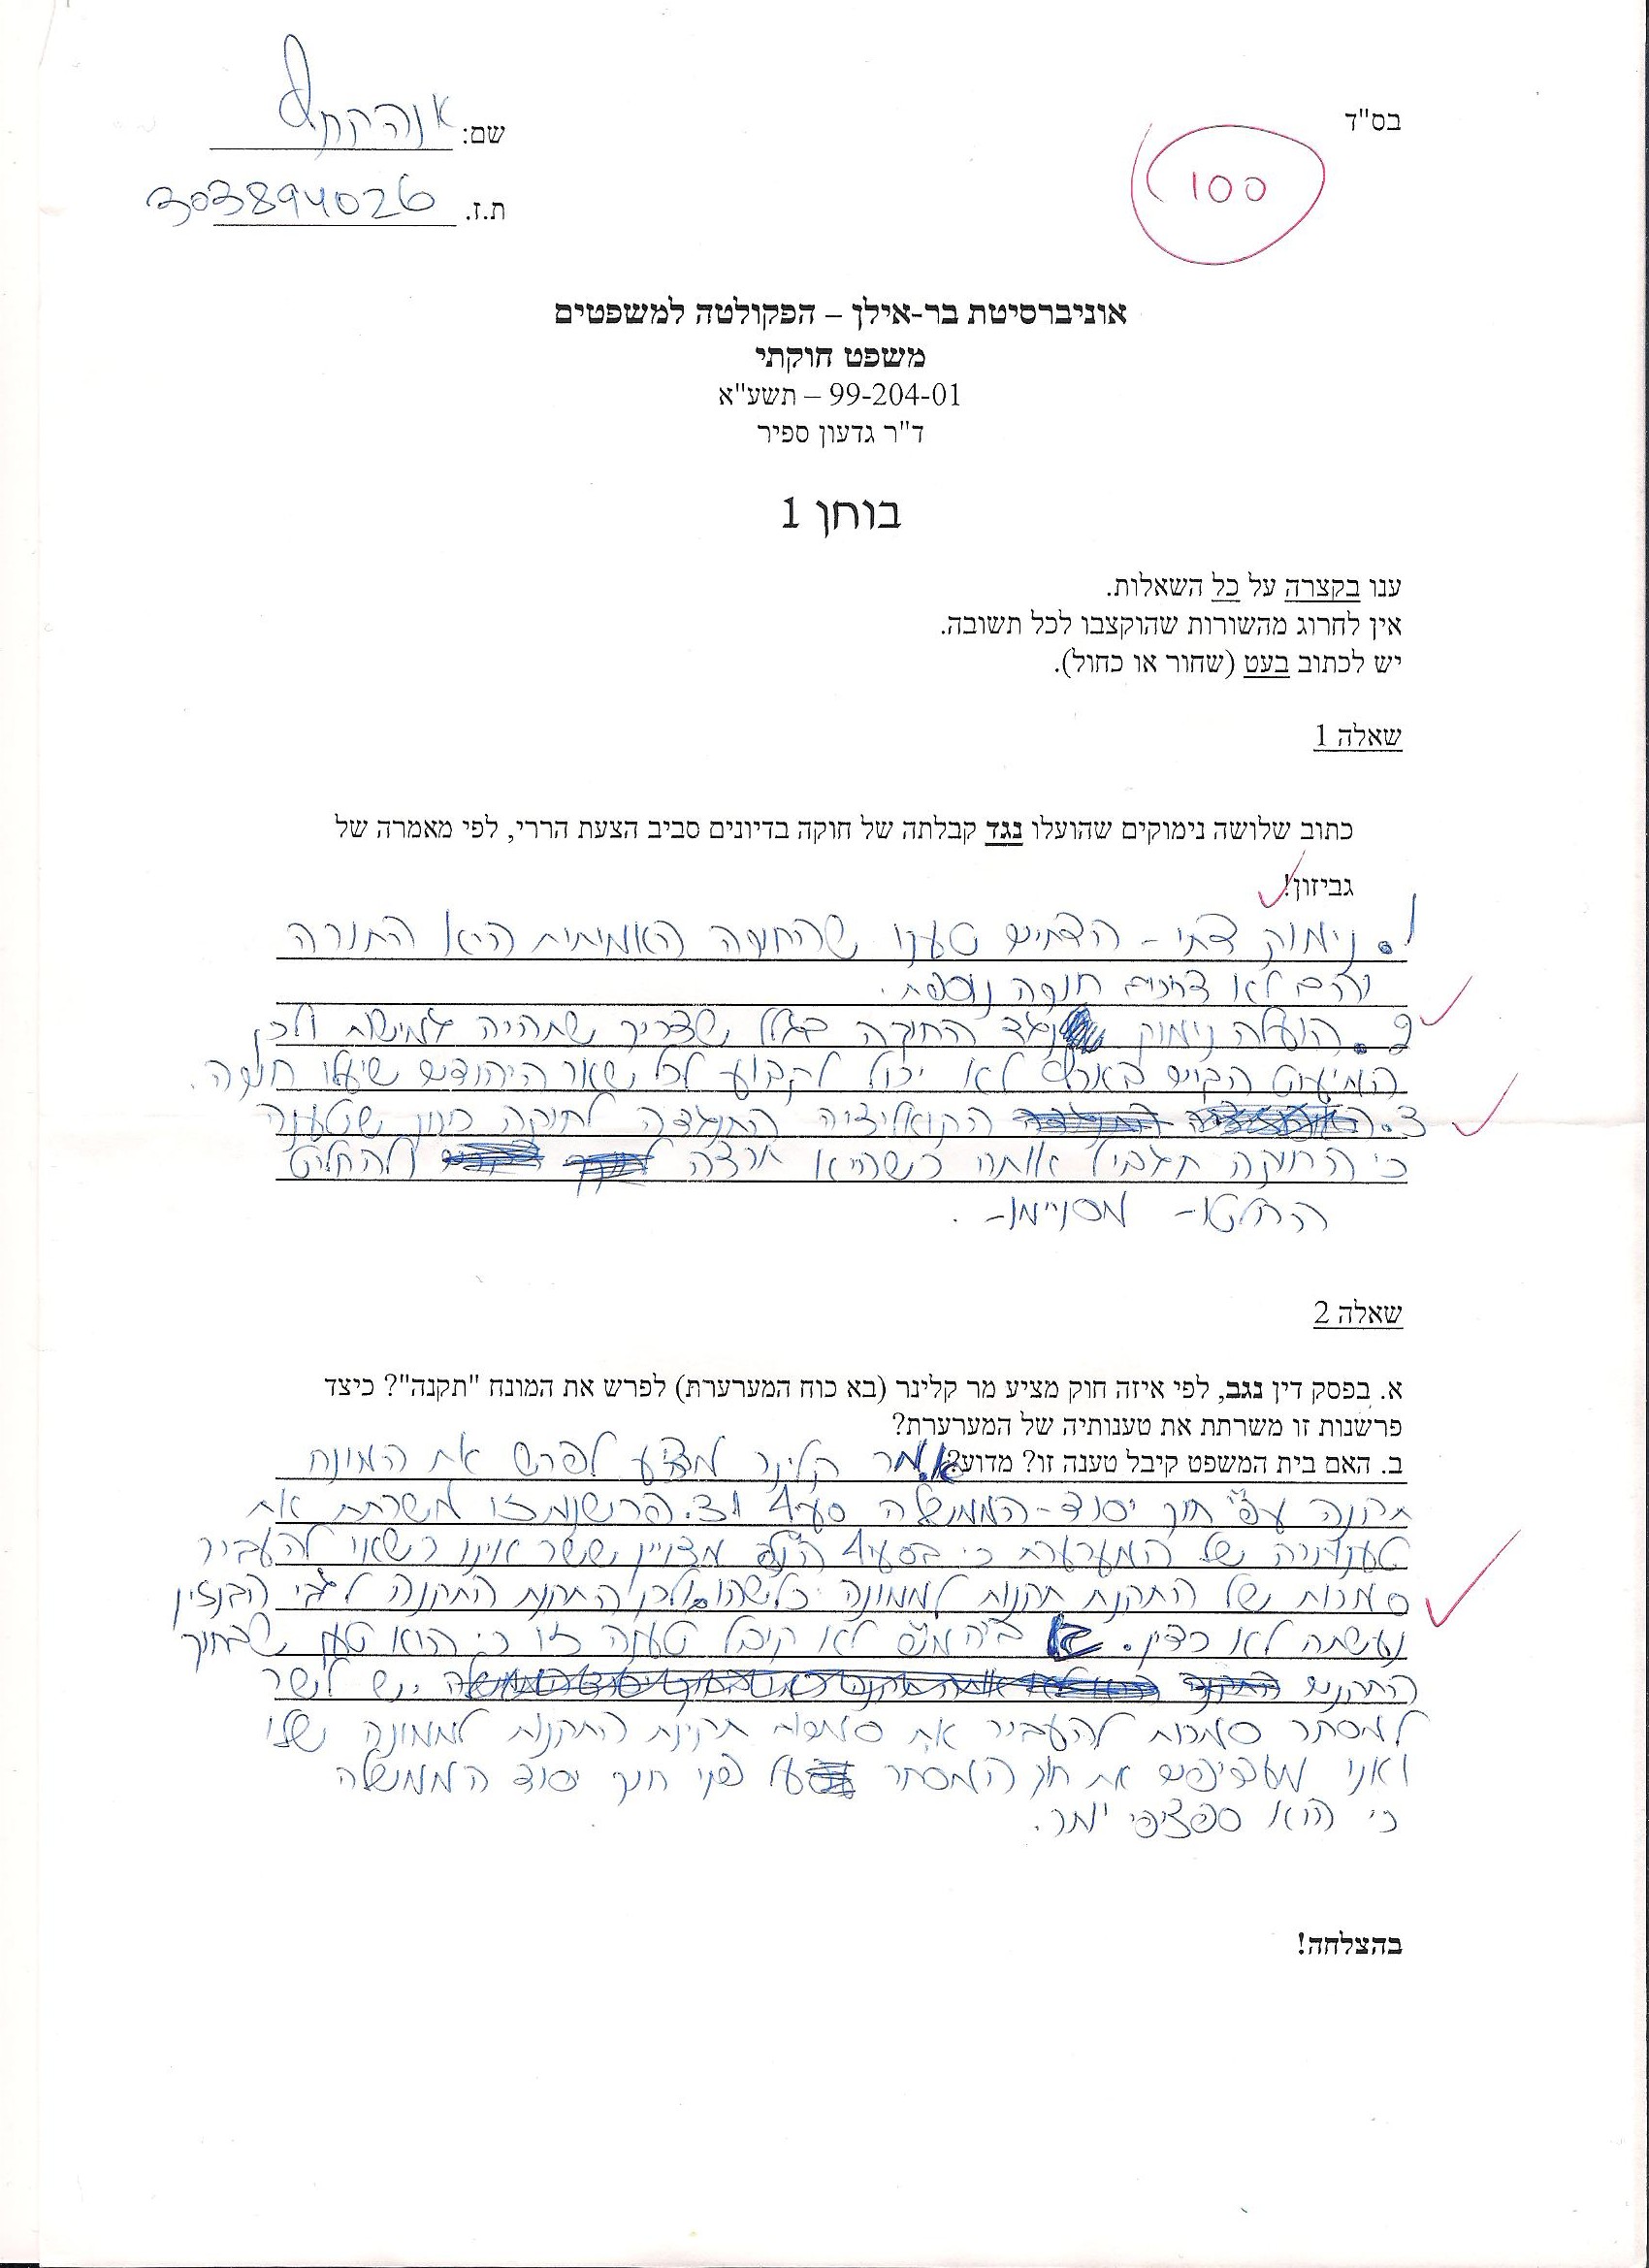 בס"ד
שם: אנה
ת.ז. 303894026
100
אוניברסיטת בר-אילן – הפקולטה למשפטים
משפט חוקתי
99-204-01 – תשע"א
ד"ר גדעון ספיר
בוחן 1
ענו בקצרה על כל השאלות.
אין לחרוג מהשורות שהוקצבו לכל תשובה.
יש לכתוב בעט (שחור או כחול).
שאלה 1
כתוב שלושה נימוקים שהועלו נגד קבלתה של חוקה בדיונים סביב הצעת הררי, לפי מאמרה של
גביזון!
1. נימוק דתי - הדתיים טענו שהחוקה האמיתית היא התורה
והם לא צריכים חוקה נוספת.
2. הועלה נימוק נגד החוקה בגלל שצריך שתהיה גמישות ולכן
המיעוט הקיים בארץ לא יכול לקבוע לכל שאר היהודים שיעלו חוקה.
3. הקואליציה התנגדה לחוקה כיוון שטענה
כי החוקה תגביל אותה כשהיא תרצה להחליט
החלטות מסויימות.
שאלה 2
א. בפסק דין נגב, לפי איזה חוק מציע מר קלינר (בא כוח המערערת) לפרש את המונח "תקנה"? כיצד
פרשנות זו משרתת את טענותיה של המערערת?
ב. האם בית המשפט קיבל טענה זו? מדוע?
א. מר קלינר מציע לפרש את המונח
תקנה עפ"י חוק יסוד-הממשלה סעיף 4 פרשנות זו משרתת את
של המערערת כי בסעיף 4 הנ"ל מצויין ששר אינו רשאי להעביר
סמכות של התקנת תקנות לממונה כלשהו ולכן התקנת התקנה לגבי הבנזין
נעשתה לא כדין. ב. ביהמ"ש לא קיבל טענה זו כי הוא טען שבחוק
התקנים יש לשר
למסחר סמכות להעביר את סמכות תקינת התקנות לממונה שלו
ואנו מעדיפים את חוק המסחר על פני חוק יסוד הממשלה
כי הוא ספציפי יותר.
בהצלחה!